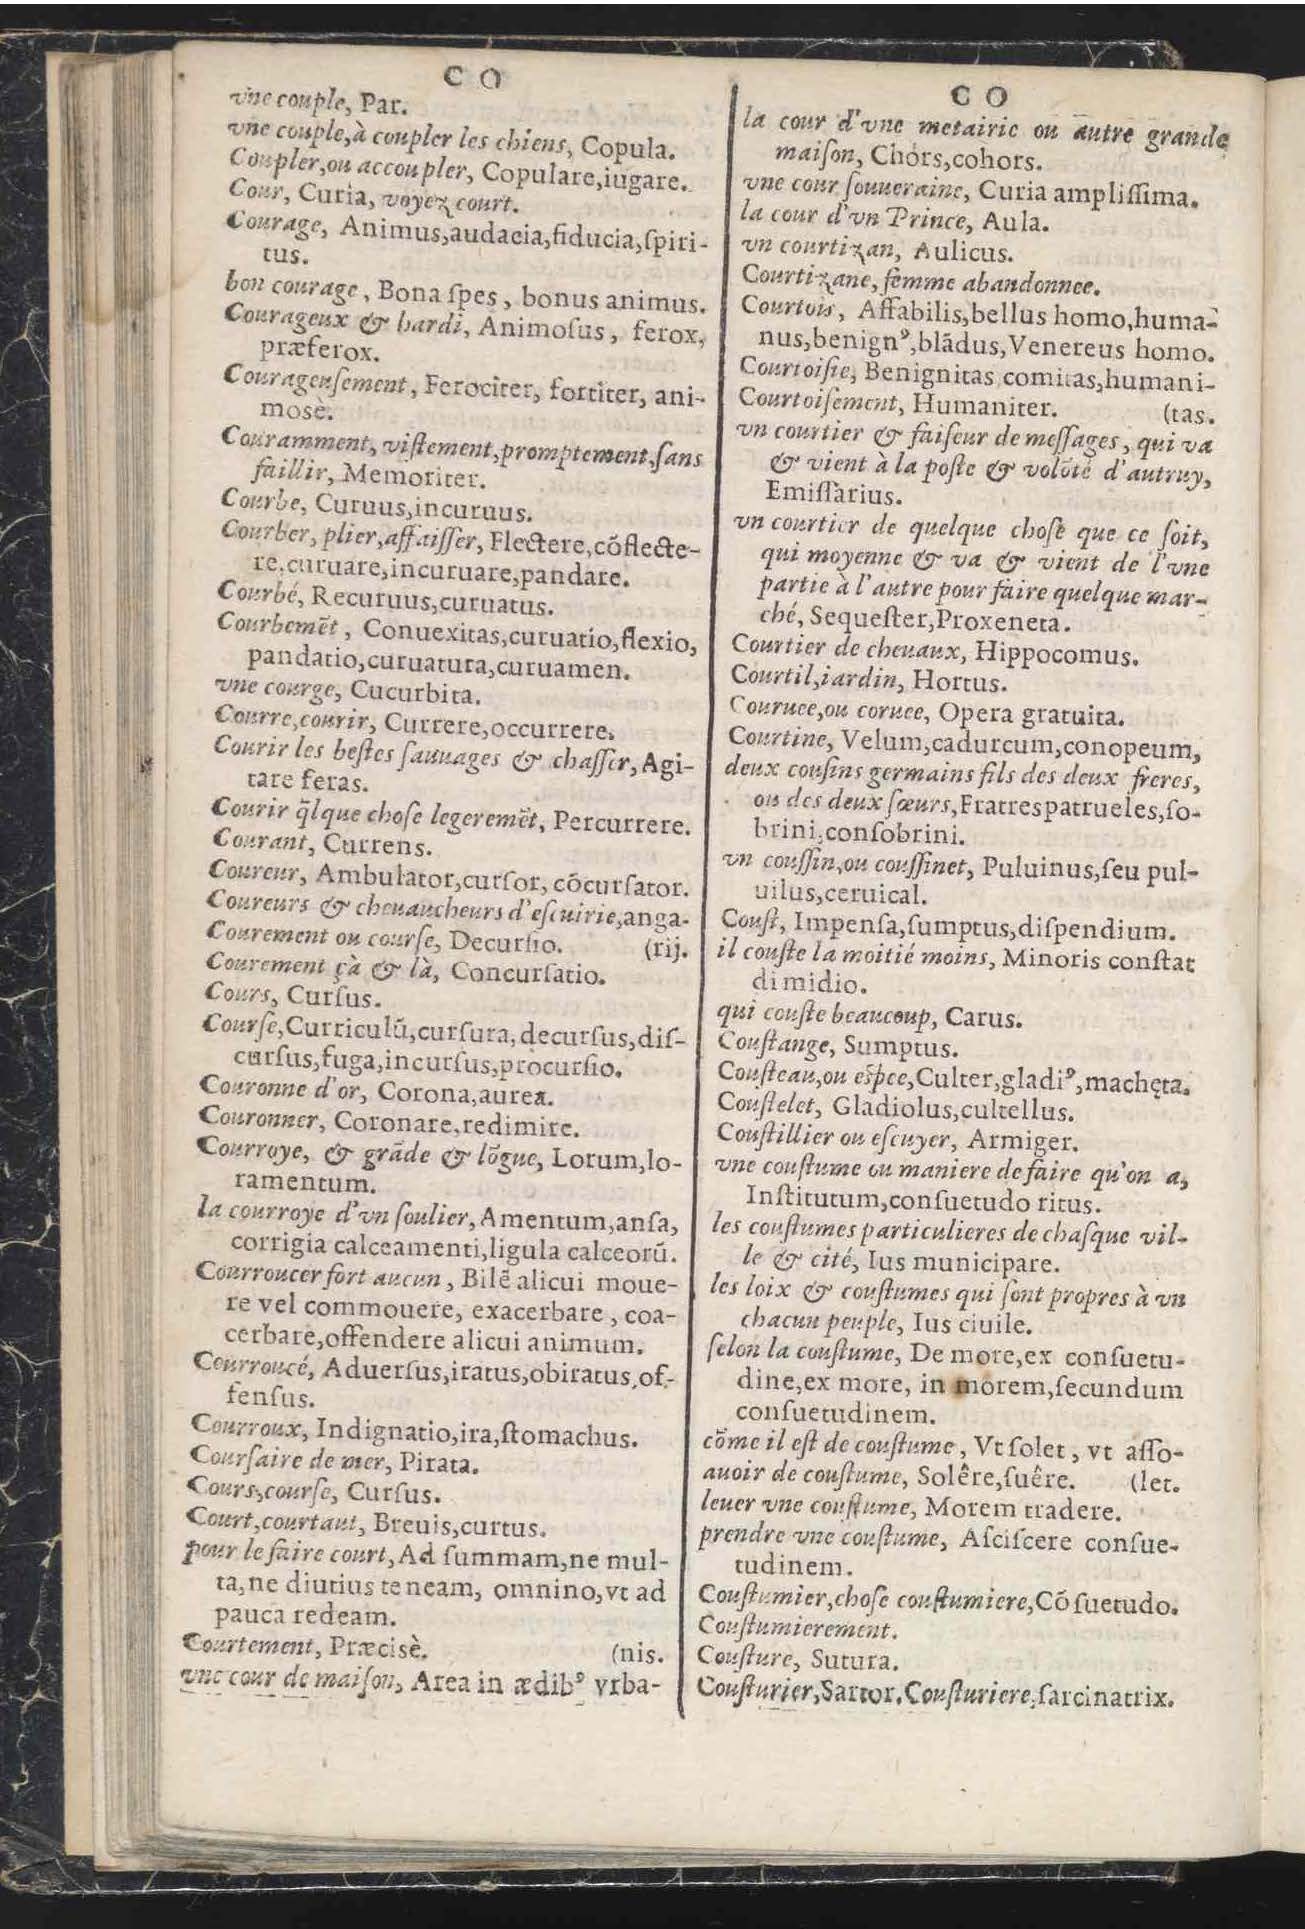 C O
vne couple, Par.
vne couple, à coupler les chiens, Copula.
Coupler, ou accoupler, Copulare, iugare.
Cour, Curia, voyez court.
Courage, Animus, audacia, fiducia, ſpiri-
tus.
bon courage, Bona ſpes, bonus animus.
Courageux & hardi, Animoſus, ferox,
præferox.
Courageuſement, Ferociter, fortiter, ani-
mosè.
Couramment, viſtement, promptement, ſans
faillir, Memoriter.
Courbe, Curuus, incuruus.
Courber, plier, affaiſſer, Flectere, cōflecte-
re, curuare, incuruare, pandare.
Courbé, Recuruus, curuatus.
Courbemēt, Conuexitas, curuatio, flexio,
pandatio, curuatura, curuamen.
vne courge, Cucurbita.
Courre, courir, Currere, occurrere.
Courir les beſtes ſauuages & chaſſer, Agi-
tare feras.
Courir q̃lque choſe legeremēt, Percurrere.
Courant, Currens.
Coureur, Ambulator, curſor, cōcurſator.
Coureurs & cheuaucheurs d'eſcuirie, anga-
Courement ou courſe, Decurſio. (rij.
Courement çà & là, Concurſatio.
Cours, Curſus.
Courſe, Curriculū, curſura, decurſus, diſ-
curſus, fuga, incurſus, procurſio.
Couronne d'or, Corona, aurea.
Couronner, Coronare, redimire.
Courroye, & grāde & lōgue, Lorum, lo-
ramentum.
la courroye d'vn ſoulier, Amentum, anſa,
corrigia calceamenti, ligula calceorū.
Courroucer fort aucun, Bilē alicui moue-
re vel commouere, exacerbare, coa-
cerbare, offendere alicui animum.
Courroucé, Aduerſus, iratus, obiratus, of-
fenſus.
Courroux, Indignatio, ira, ſtomachus.
Courſaire de mer, Pirata.
Cours, courſe, Curſus.
Court, courtaut, Breuis, curtus.
pour le faire court, Ad ſummam, ne mul-
ta, ne diutius teneam, omnino, vt ad
pauca redeam.
Courtement, Præcisè. (nis.
vne cour de maiſon, Area in ædibꝰ vrba-
C O
la cour d'vne metairie ou autre grande
maiſon, Chórs, cohors.
vne cour ſouueraine, Curia ampliſſima.
la cour d'vn Prince, Aula.
vn courtizan, Aulicus.
Courtizane, femme abandonnee.
Courtois, Affabilis, bellus homo, huma-
nus, benignꝰ, blādus, Venereus homo.
Courtoiſie, Benignitas comitas, humani-
Courtoiſement, Humaniter. (tas.
vn courtier & faiſeur de meſſages, qui va
& vient à la poſte & volōté d'autruy,
Emiſſarius.
vn courtier de quelque choſe que ce ſoit,
qui moyenne & va & vient de l'vne
partie à l'autre pour faire quelque mar-
ché, Sequeſter, Proxeneta.
Courtier de cheuaux, Hippocomus.
Courtil, iardin, Hortus.
Couruee, ou coruee, Opera gratuita.
Courtine, Velum, cadurcum, conopeum,
deux couſins germains fils des deux freres,
ou des deux ſœurs, Fratres patrueles, ſo-
brini, conſobrini.
vn couſſin, ou couſſinet, Puluinus, ſeu pul-
uilus, ceruical.
Couſt, Impenſa, ſumptus, diſpendium.
il couſte la moitié moins, Minoris conſtat
dimidio.
qui couſte beaucoup, Carus.
Couſtange, Sumptus.
Couſteau, ou eſp̃ce, Culter, gladiꝰ, machęta.
Couſtelet, Gladiolus, cultellus.
Couſtillier ou eſcuyer, Armiger.
vne couſtume ou maniere de faire qu'on a,
Inſtitutum, conſuetudo ritus.
les couſtumes particulieres de chaſque vil-
le & cité, Ius municipare.
les loix & couſtumes qui ſont propres à vn
chacun peuple, Ius ciuile.
ſelon la couſtume, De more, ex conſuetu-
dine, ex more, in morem, ſecundum
conſuetudinem.
cōme il eſt de couſtume, Vt ſolet, vt aſſo-
auoir de couſtume, Solêre, ſuêre. (let.
leuer vne couſtume, Morem tradere.
prendre vne couſtume, Aſciſcere conſue-
tudinem.
Couſtumier, choſe couſtumiere, Cōſuetudo.
Couſtumierement.
Couſture, Sutura.
Couſturier, Sartor. Couſturiere, ſarcinatrix.